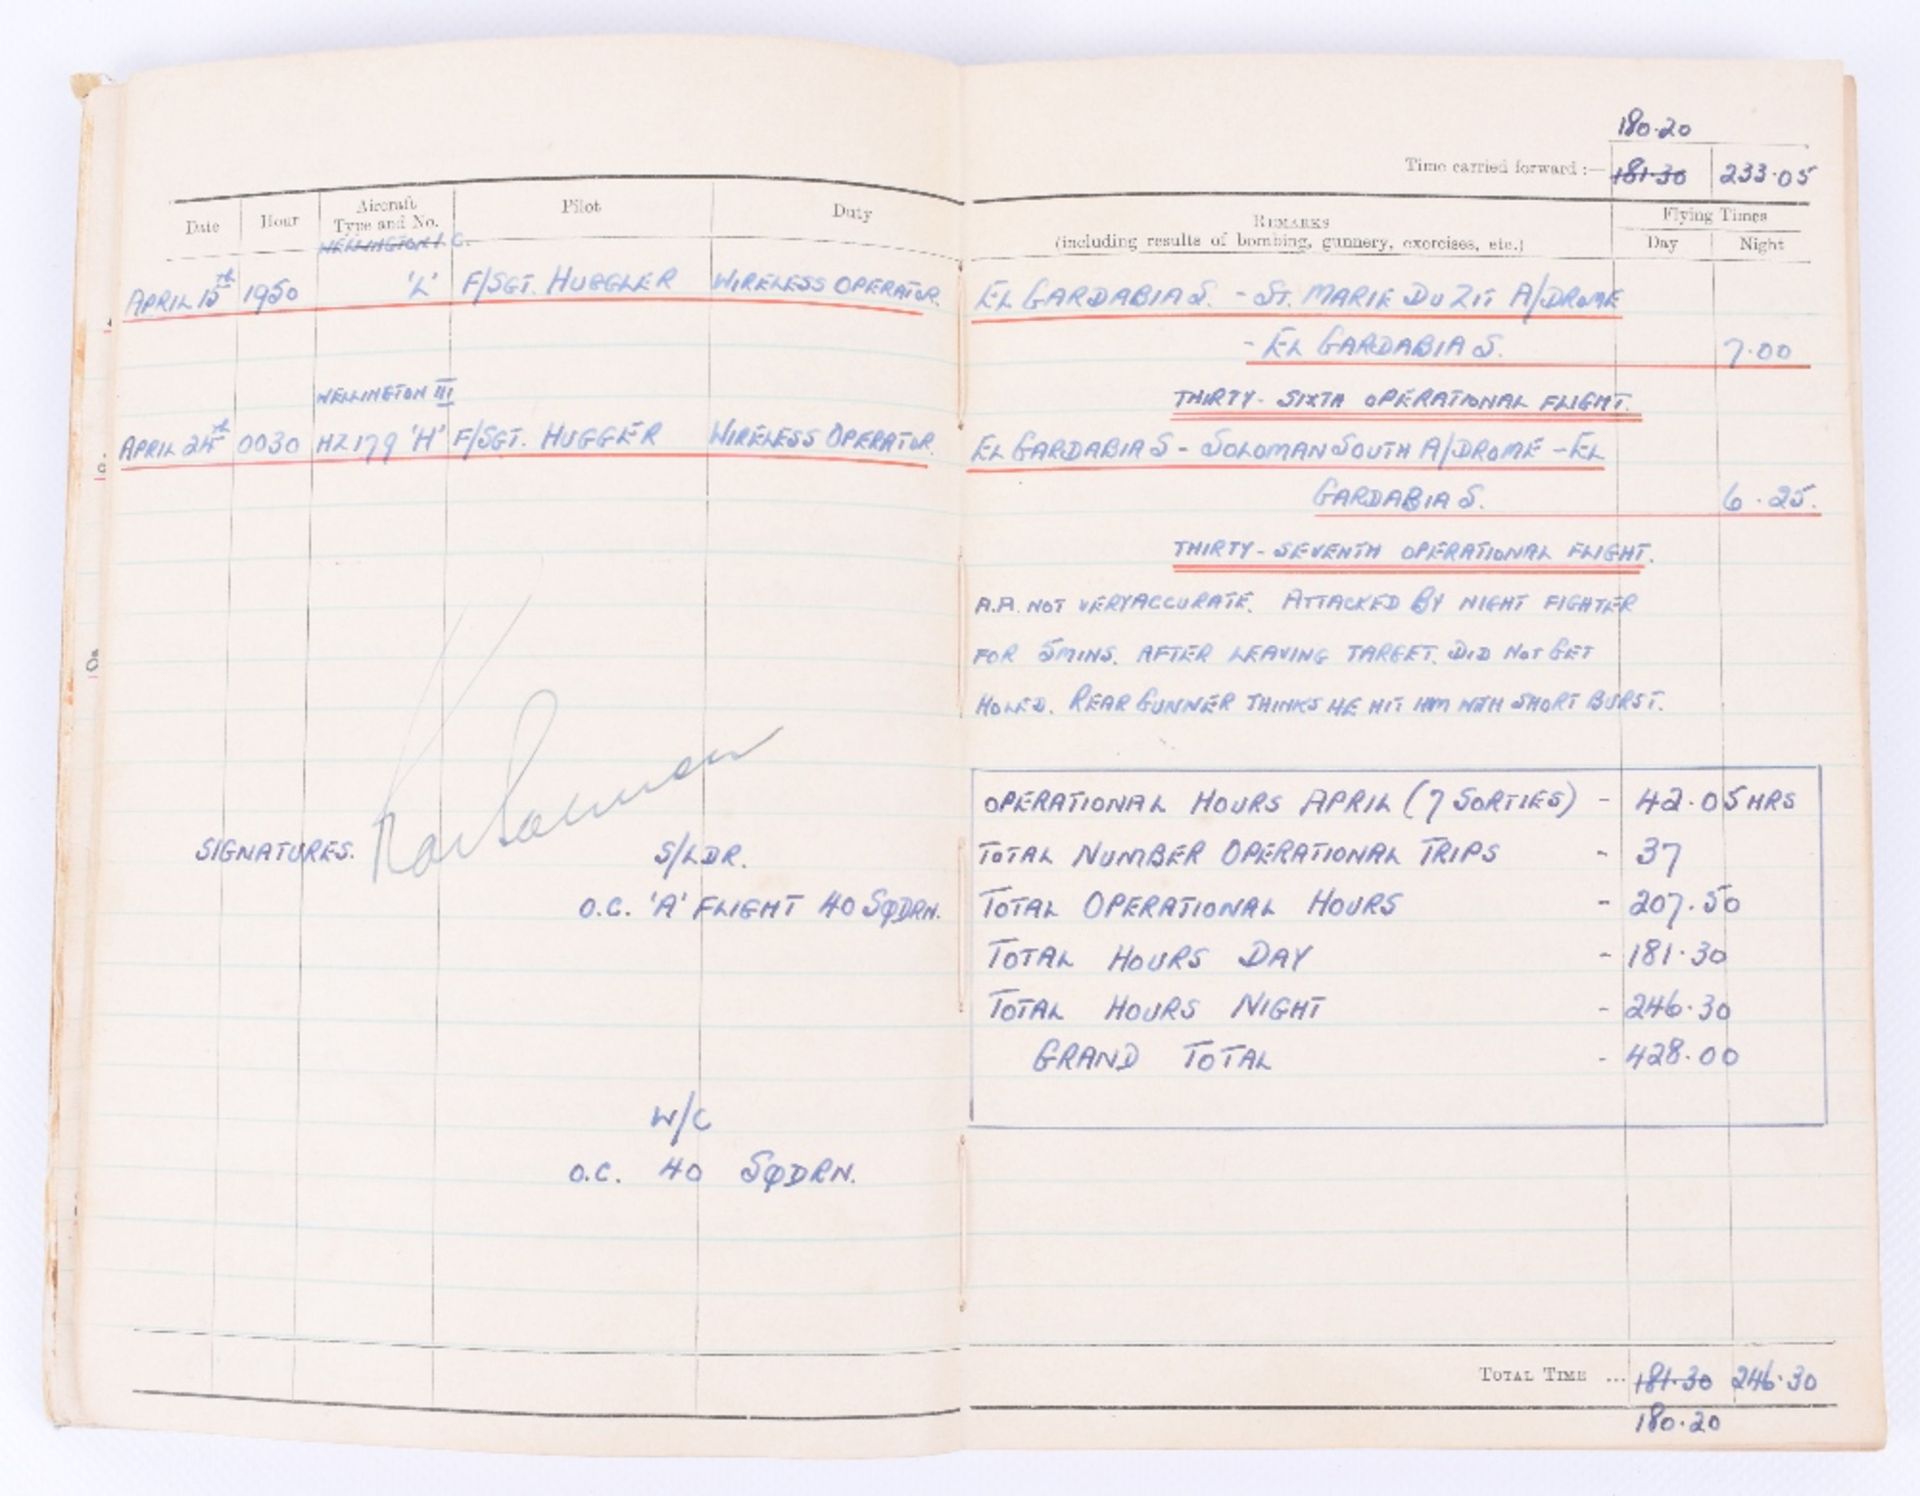 180.20
Time carried forward :— 181.30 233.05
Date Hour Aircraft Type and No. Pilot Duty
REMARKS
(including results of bombing, gunnery, exercises, etc.)
Flying Times
Day Night
WELLINGTON I.C.
APRIL 15th 1950 'L' F/SGT. HUGGLER WIRELESS OPERATOR. EL GARDABIA S. - ST. MARIE DU ZIT A/DROME
- EL GARDABIA S. 7.00
WELLINGTON III THIRTY-SIXTH OPERATIONAL FLIGHT.
APRIL 24th 0030 HZ179 'H' F/SGT. HUGGLER WIRELESS OPERATOR. EL GARDABIA S - SOLOMAN SOUTH A/DROME - EL
GARDABIA S. 6.25.
THIRTY-SEVENTH OPERATIONAL FLIGHT.
A.A. NOT VERY ACCURATE. ATTACKED BY NIGHT FIGHTER
FOR 5MINS. AFTER LEAVING TARGET. DID NOT GET
HOLED. REAR GUNNER THINKS HE HIT HIM WITH SHORT BURST.
SIGNATURES. S/LDR.
O.C. 'A' FLIGHT 40 SQDRN.
W/C
O.C. 40 SQDRN.
OPERATIONAL HOURS APRIL (7 SORTIES) - 42.05 HRS
TOTAL NUMBER OPERATIONAL TRIPS - 37
TOTAL OPERATIONAL HOURS - 207.50
TOTAL HOURS DAY - 181.30
TOTAL HOURS NIGHT - 246.30
GRAND TOTAL - 428.00
TOTAL TIME ... 181.30 246.30
180.20